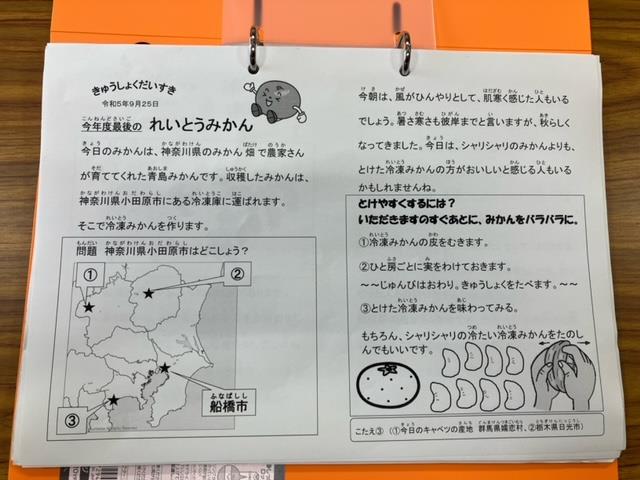 きゅうしょくだいすき
令和5年9月25日
今年度最後の れいとうみかん
今日のみかんは、神奈川県のみかん畑で農家さん
が育ててくれた青島みかんです。収穫したみかんは、
神奈川県小田原市にある冷凍庫に運ばれます。
そこで冷凍みかんを作ります。
問題 神奈川県小田原市はどこしょう?
①
②
船橋市
③
今朝は、風がひんやりとして、肌寒く感じた人もいる
でしょう。暑さ寒さも彼岸までと言いますが、秋らしく
なってきました。今日は、シャリシャリのみかんよりも、
とけた冷凍みかんの方がおいしいと感じる人もいる
かもしれませんね。
とけやすくするには?
いただきますのすぐあとに、みかんをバラバラに。
①冷凍みかんの皮をむきます。
②ひと房ごとに実をわけておきます。
~~じゅんびはおわり。きゅうしょくをたべます。~~
③とけた冷凍みかんを味わってみる。
もちろん、シャリシャリの冷たい冷凍みかんをたのし
んでもいいです。
こたえ③ (①今日のキャベツの産地 群馬県嬬恋村、②栃木県日光市)